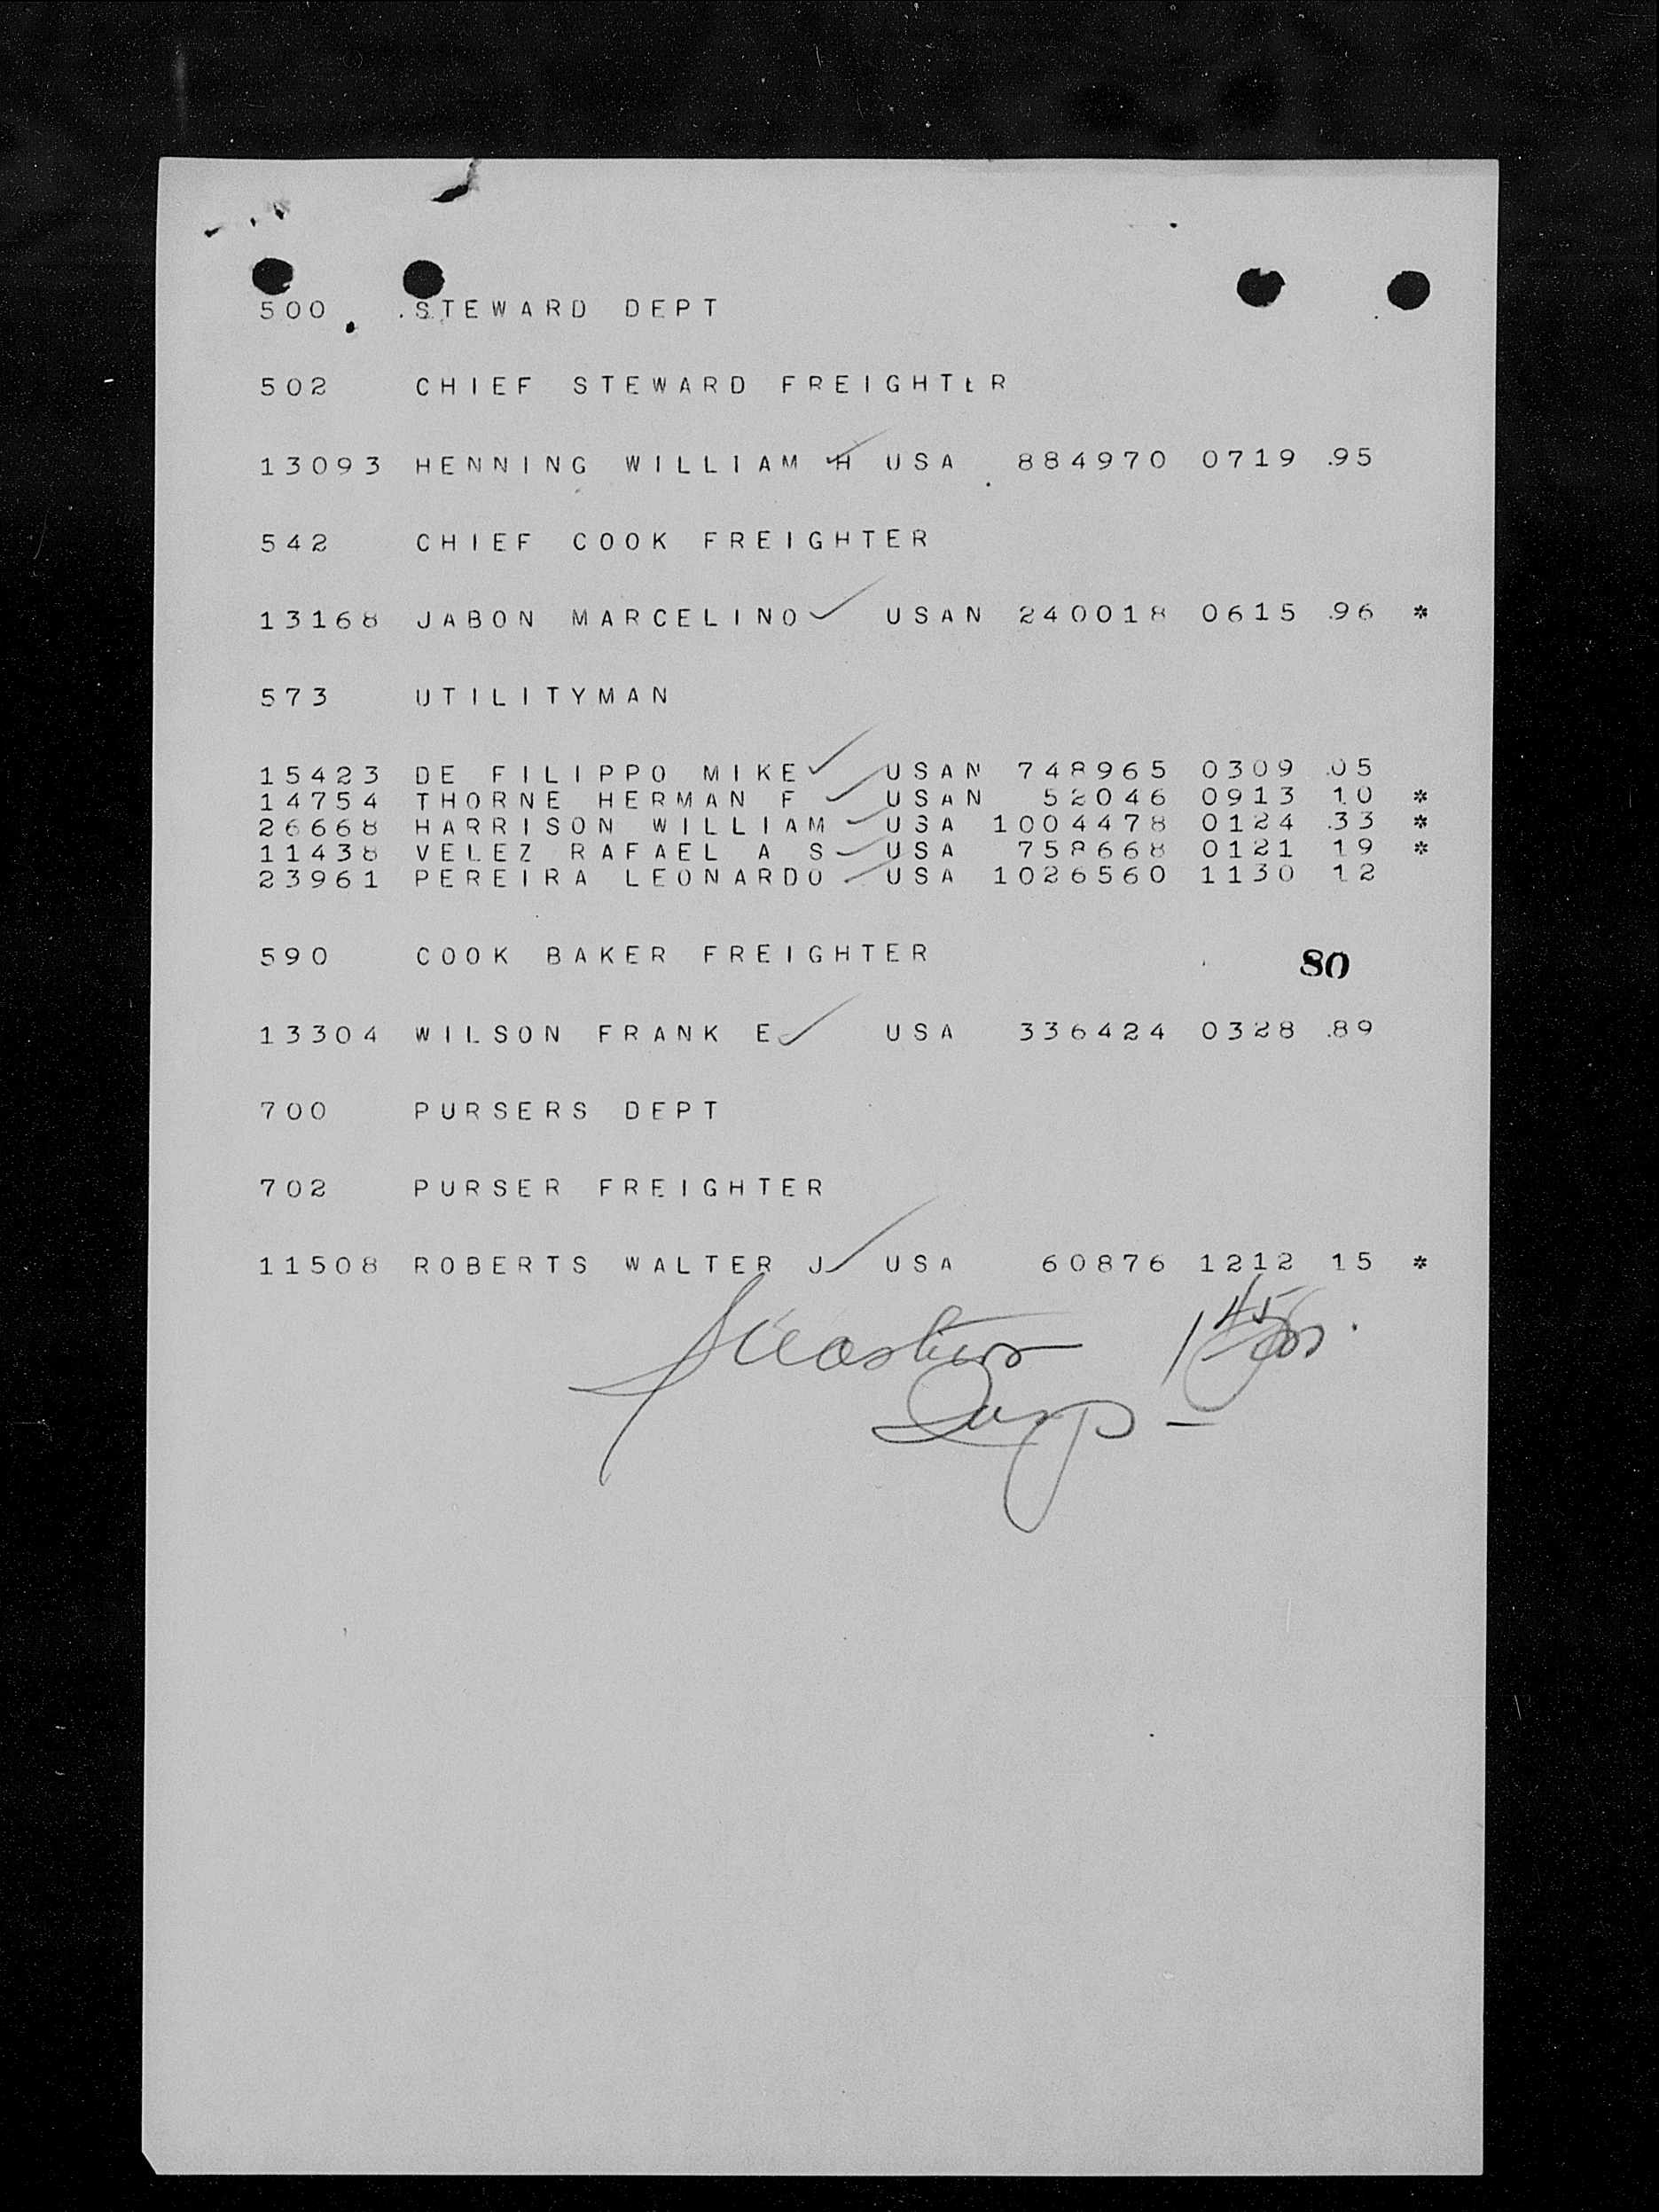 500 STEWARD DEPT
502 CHIEF STEWARD FREIGHTER
13093 HENNING WILLIAM H USA 884970 0719 .95
542 CHIEF COOK FREIGHTER
13168 JABON MARCELINO USAN 240018 0615 .96 *
573 UTILITYMAN
15423 DE FILIPPO MIKE USAN 748965 0309 .05
14754 THORNE HERMAN F USAN 52046 0913 10 *
26668 HARRISON WILLIAM USA 1004478 0124 .33 *
11438 VELEZ RAFAEL A S USA 758668 0121 19 *
23961 PEREIRA LEONARDO USA 1026560 1130 12
590 COOK BAKER FREIGHTER
80
13304 WILSON FRANK E USA 336424 0328 .89
700 PURSERS DEPT
702 PURSER FREIGHTER
11508 ROBERTS WALTER J USA 60876 1212 15 *